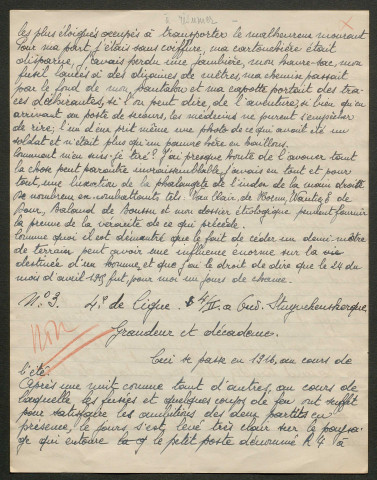 à rythmer
les plus éloignés occupés à transporter le malheureux mourant
Pour ma part, j'étais sans coiffure, ma cartouchière était
disparue, j'avais perdu une jambière, mon havre-sac, mon
fusil lancés à des dizaines de mètres ma chemise passait
par le fond de mon pantalon et ma capote portait des tra-
ces délibérantes, si l'on peut dire, de l'aventure; si bien qu'en
arrivant au poste de secours, les médecins ne purent s'empêcher
de rire; l'un d'eux prit même une photo de ce qui avait été un
soldat et n'était plus qu'un pauvre hère en haillons.
Comment m'en suis-je tiré? J'ai presque honte de l'avouer tant
la chose peut paraître invraisemblable, j'avais en tout et pour
tout, une luxation de la phalangette de l'index de la main droite
De nombreux ex-combattants tels: Van Clair, de Hoeun, Nantier, E de
Bour, Baland de Boussu et mon dossier étiologique peuvent fournir
la preuve de la véracité de ce qui précède.
Comme quoi il est démontré que le fait de céder un demi-mètre
de terrain peut avoir une influence énorme sur la vie
destinée d'un homme et que j'ai le droit de dire que le 24 du
mois d'avril 1915 fut, pour moi un jour de chance.
N° 3. 4e de Ligne. 4/II. a Fred. Stuyvenberghe.
Non
Grandeur et décadence.
Ceci se passe en 1916, au cours de
l'été.
Après une nuit comme tant d'autres, au cours de
laquelle les fusées et quelques coups de feu ont suffit
pour satisfaire les ambitions des deux partis en
présence, le jour s'est levé très clair sur le paysa-
ge qui entoure le petit poste dénommé R 4 à